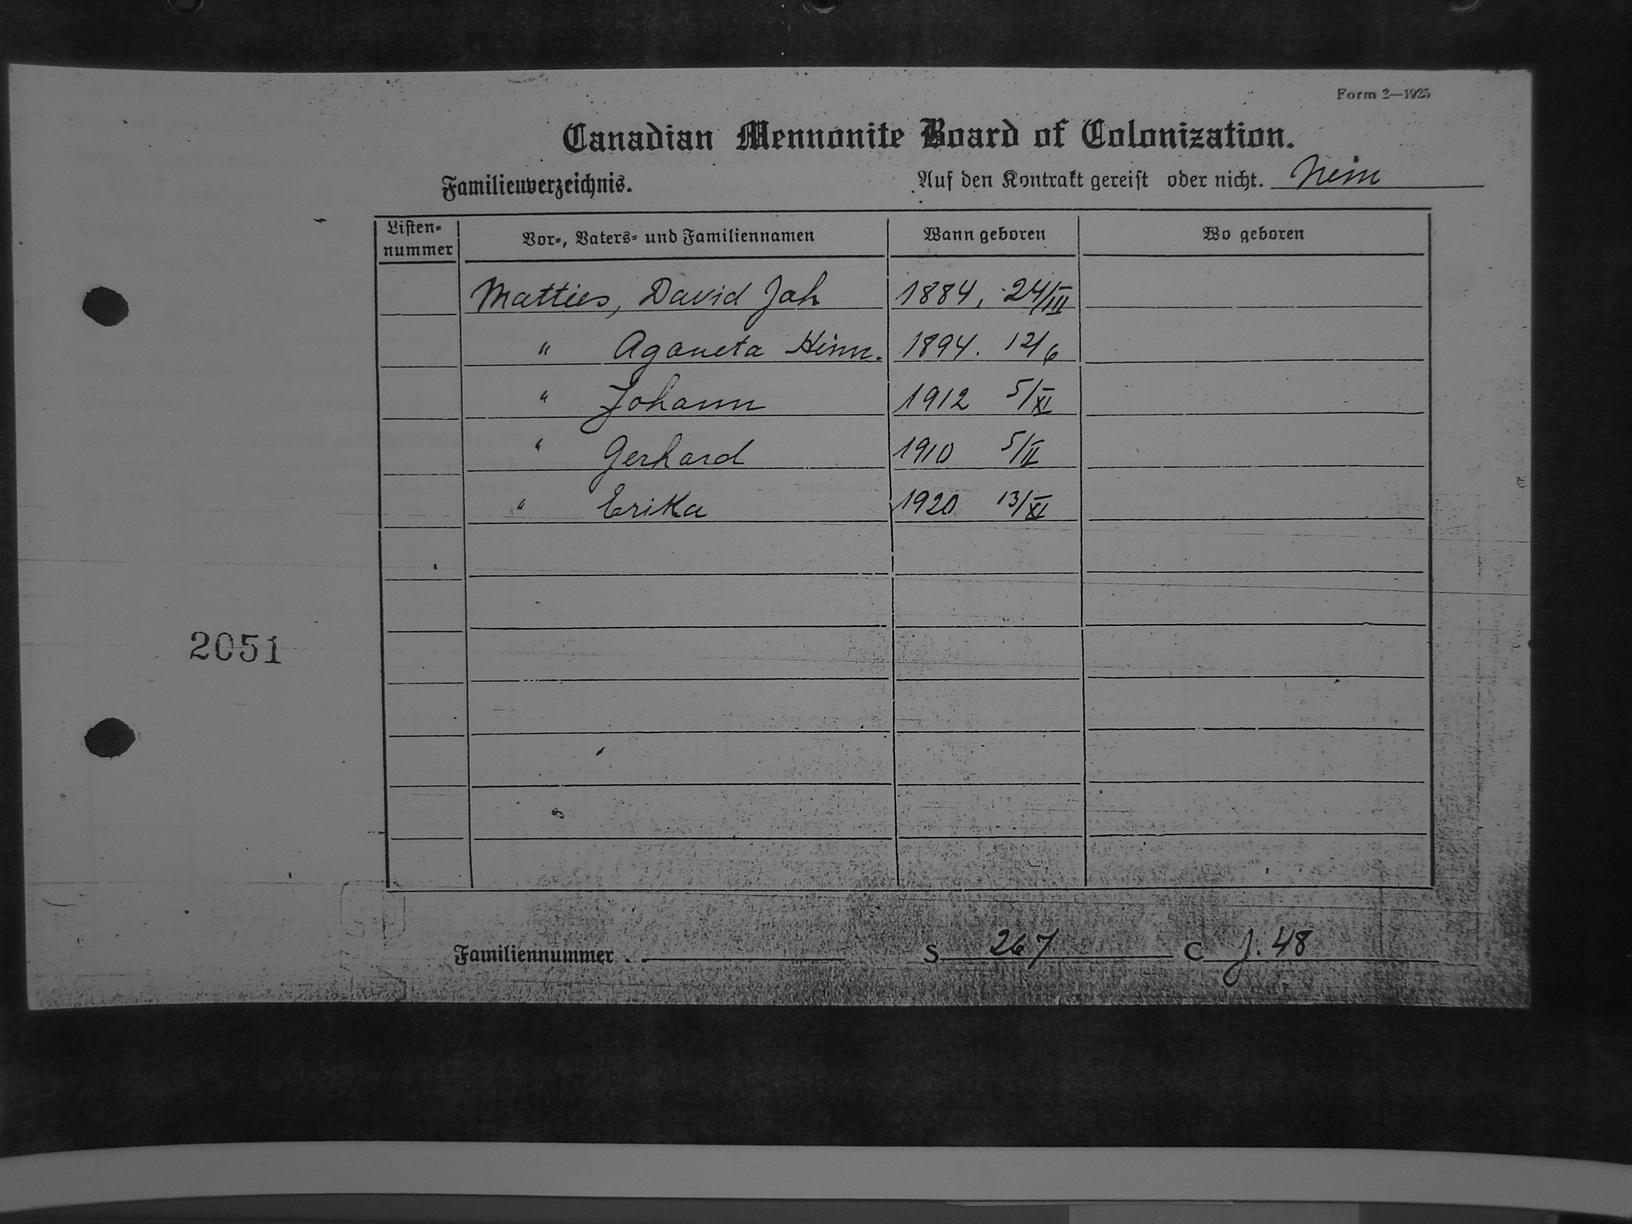 Form 2—1925
Canadian Mennonite Board of Colonization.
Familienverzeichnis. Auf den Kontrakt gereist oder nicht. Nein
Listen-nummer Vor-, Vaters- und Familiennamen Wann geboren Wo geboren
Matties, David Joh 1884, 24/III
" Aganeta Heinr. 1894. 12/6
" Johann 1912 5/XI
" Gerhard 1910 5/II
" Erika 1920 13/XI
2051
Familiennummer S 267 C J. 48